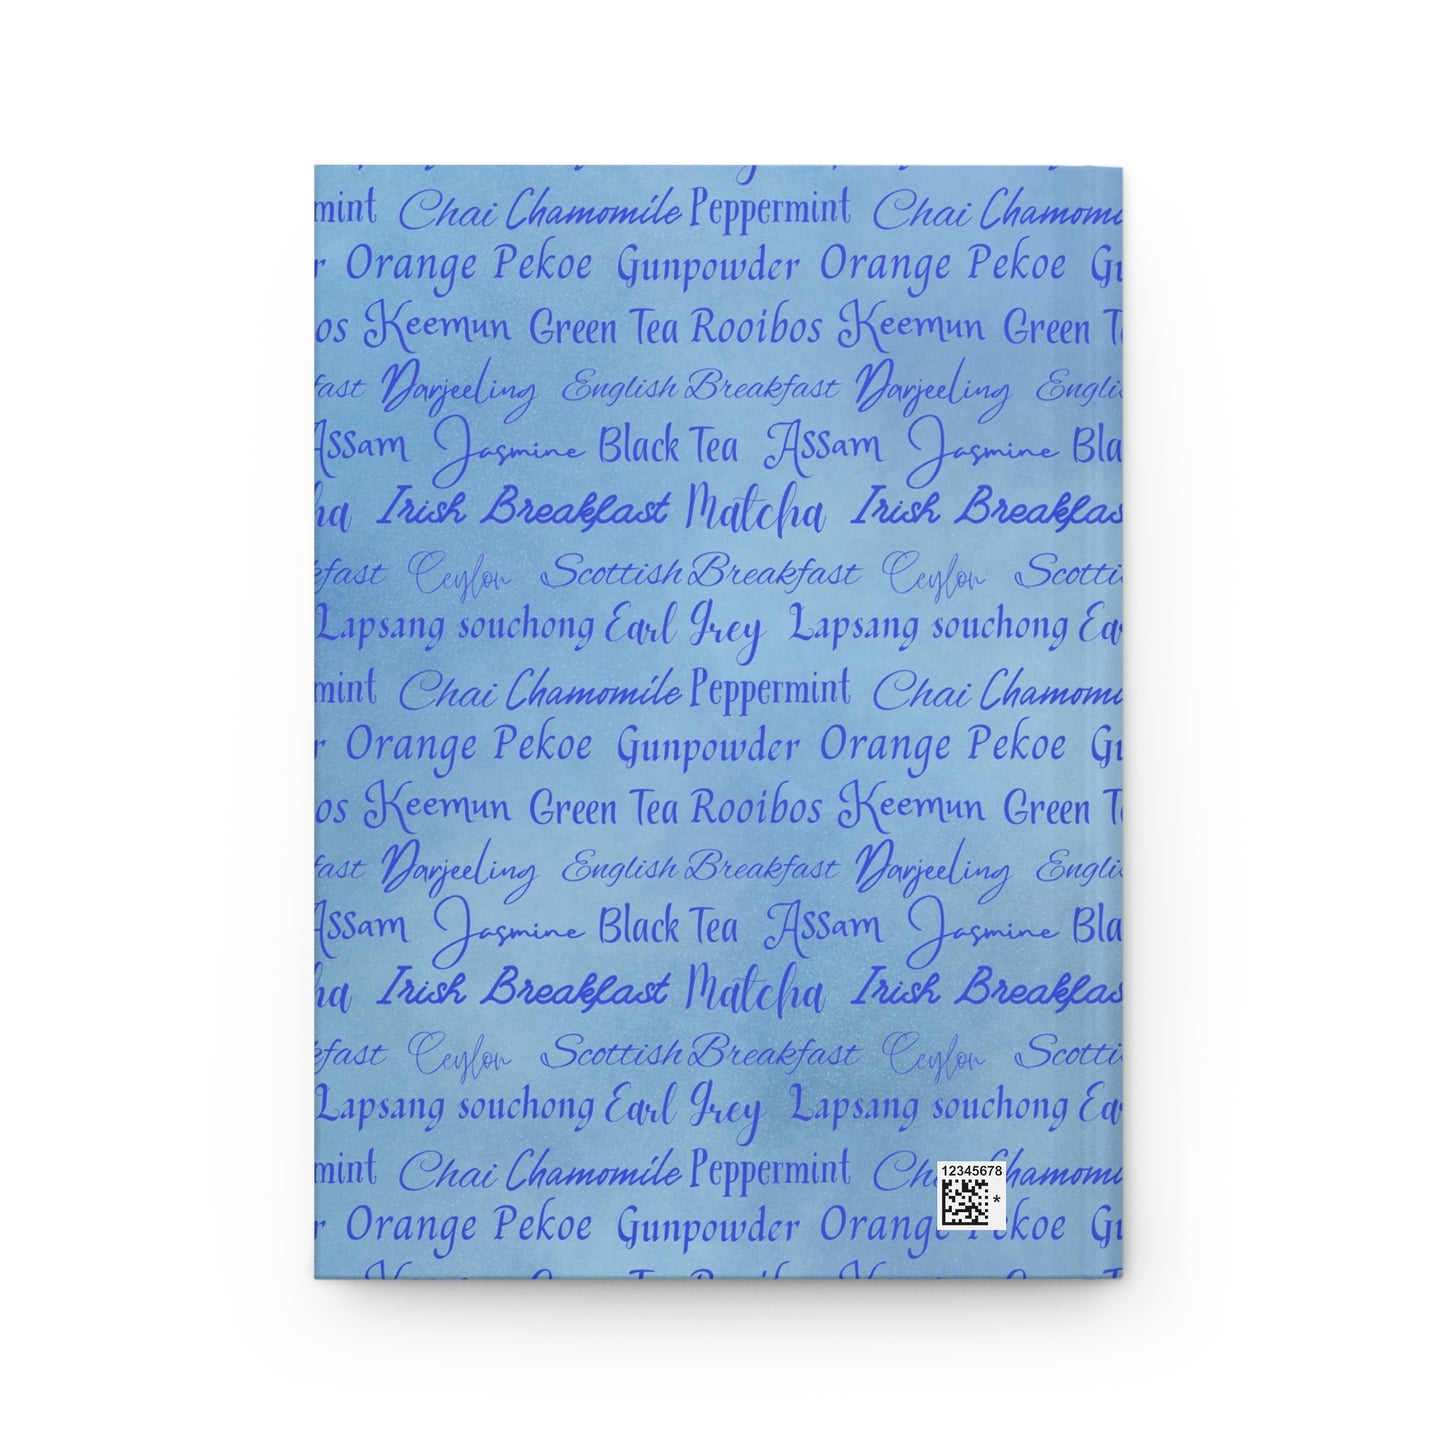 mint Chai Chamomile Peppermint Chai Chamomi
r Orange Pekoe Gunpowder Orange Pekoe Gu
os Keemun Green Tea Rooibos Keemun Green T
fast Darjeeling English Breakfast Darjeeling Englis
Assam Jasmine Black Tea Assam Jasmine Bla
ha Irish Breakfast Matcha Irish Breakfas
kfast Ceylon Scottish Breakfast Ceylon Scotti
Lapsang souchong Earl Grey Lapsang souchong Ear
mint Chai Chamomile Peppermint Chai Chamomi
r Orange Pekoe Gunpowder Orange Pekoe Gu
os Keemun Green Tea Rooibos Keemun Green T
fast Darjeeling English Breakfast Darjeeling Englis
Assam Jasmine Black Tea Assam Jasmine Bla
ha Irish Breakfast Matcha Irish Breakfas
kfast Ceylon Scottish Breakfast Ceylon Scotti
Lapsang souchong Earl Grey Lapsang souchong Ear
mint Chai Chamomile Peppermint Ch hamomi
12345678
*
r Orange Pekoe Gunpowder Orange Pekoe Gu